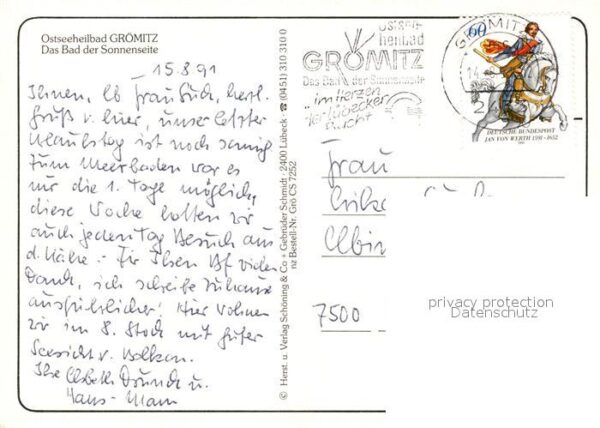 Ostseeheilbad GRÖMITZ
Das Bad der Sonnenseite
15.8.91
Ihnen, lb Frau Such, herzl.
Gruß v. hier, unser letzter
Urlaubstag ist noch sonnig
zum Meerbaden war es
nur die 1. Tage möglich,
diese Woche hatten wir
auch jeden Tag Besuch aus
d. Nähe. Für Ihren Bf vielen
Dank, ich schreibe zuhause
ausführlicher! Hier wohnen
wir im 8. Stock mit guter
Seesicht v. Balkon.
Ihre Elsbeth u.
Hans-
© Herst. u. Verlag Schöning & Co + Gebrüder Schmidt · 2400 Lübeck · ☎ (0451) 310 310 0
nz Bestell-Nr. Grö CS 7252
Ostsee-
heilbad
GRÖMITZ
Das Bad der Sonnenseite
...im Herzen
der Lübecker
Bucht
GRÖMITZ
14
2
60
DEUTSCHE BUNDESPOST
JAN VON WERTH 1591-1652
Frau
7500
privacy protection
Datenschutz